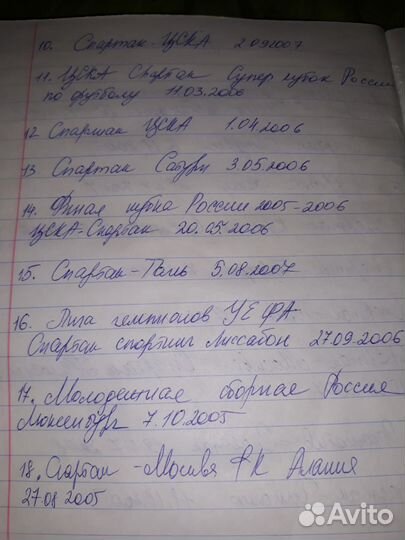 10. Спартак-ЦСКА 2.09.2007
11. ЦСКА Спартак Супер кубок России
по футболу 11.03.2006
12 Спартак ЦСКА 1.04.2006
13 Спартак Сатурн 3.05.2006
14. Финал кубка России 2005-2006
ЦСКА-Спартак 20.05.2006
15. Спартак-Томь 5.08.2007
16. Лига чемпионов УЕФА
Спартак спортинг Лиссабон 27.09.2006
17. Молодежная сборная Россия
Люксембург 7.10.2005
18. Спартак-Москва ФК Алания
27.08 2005
Avito